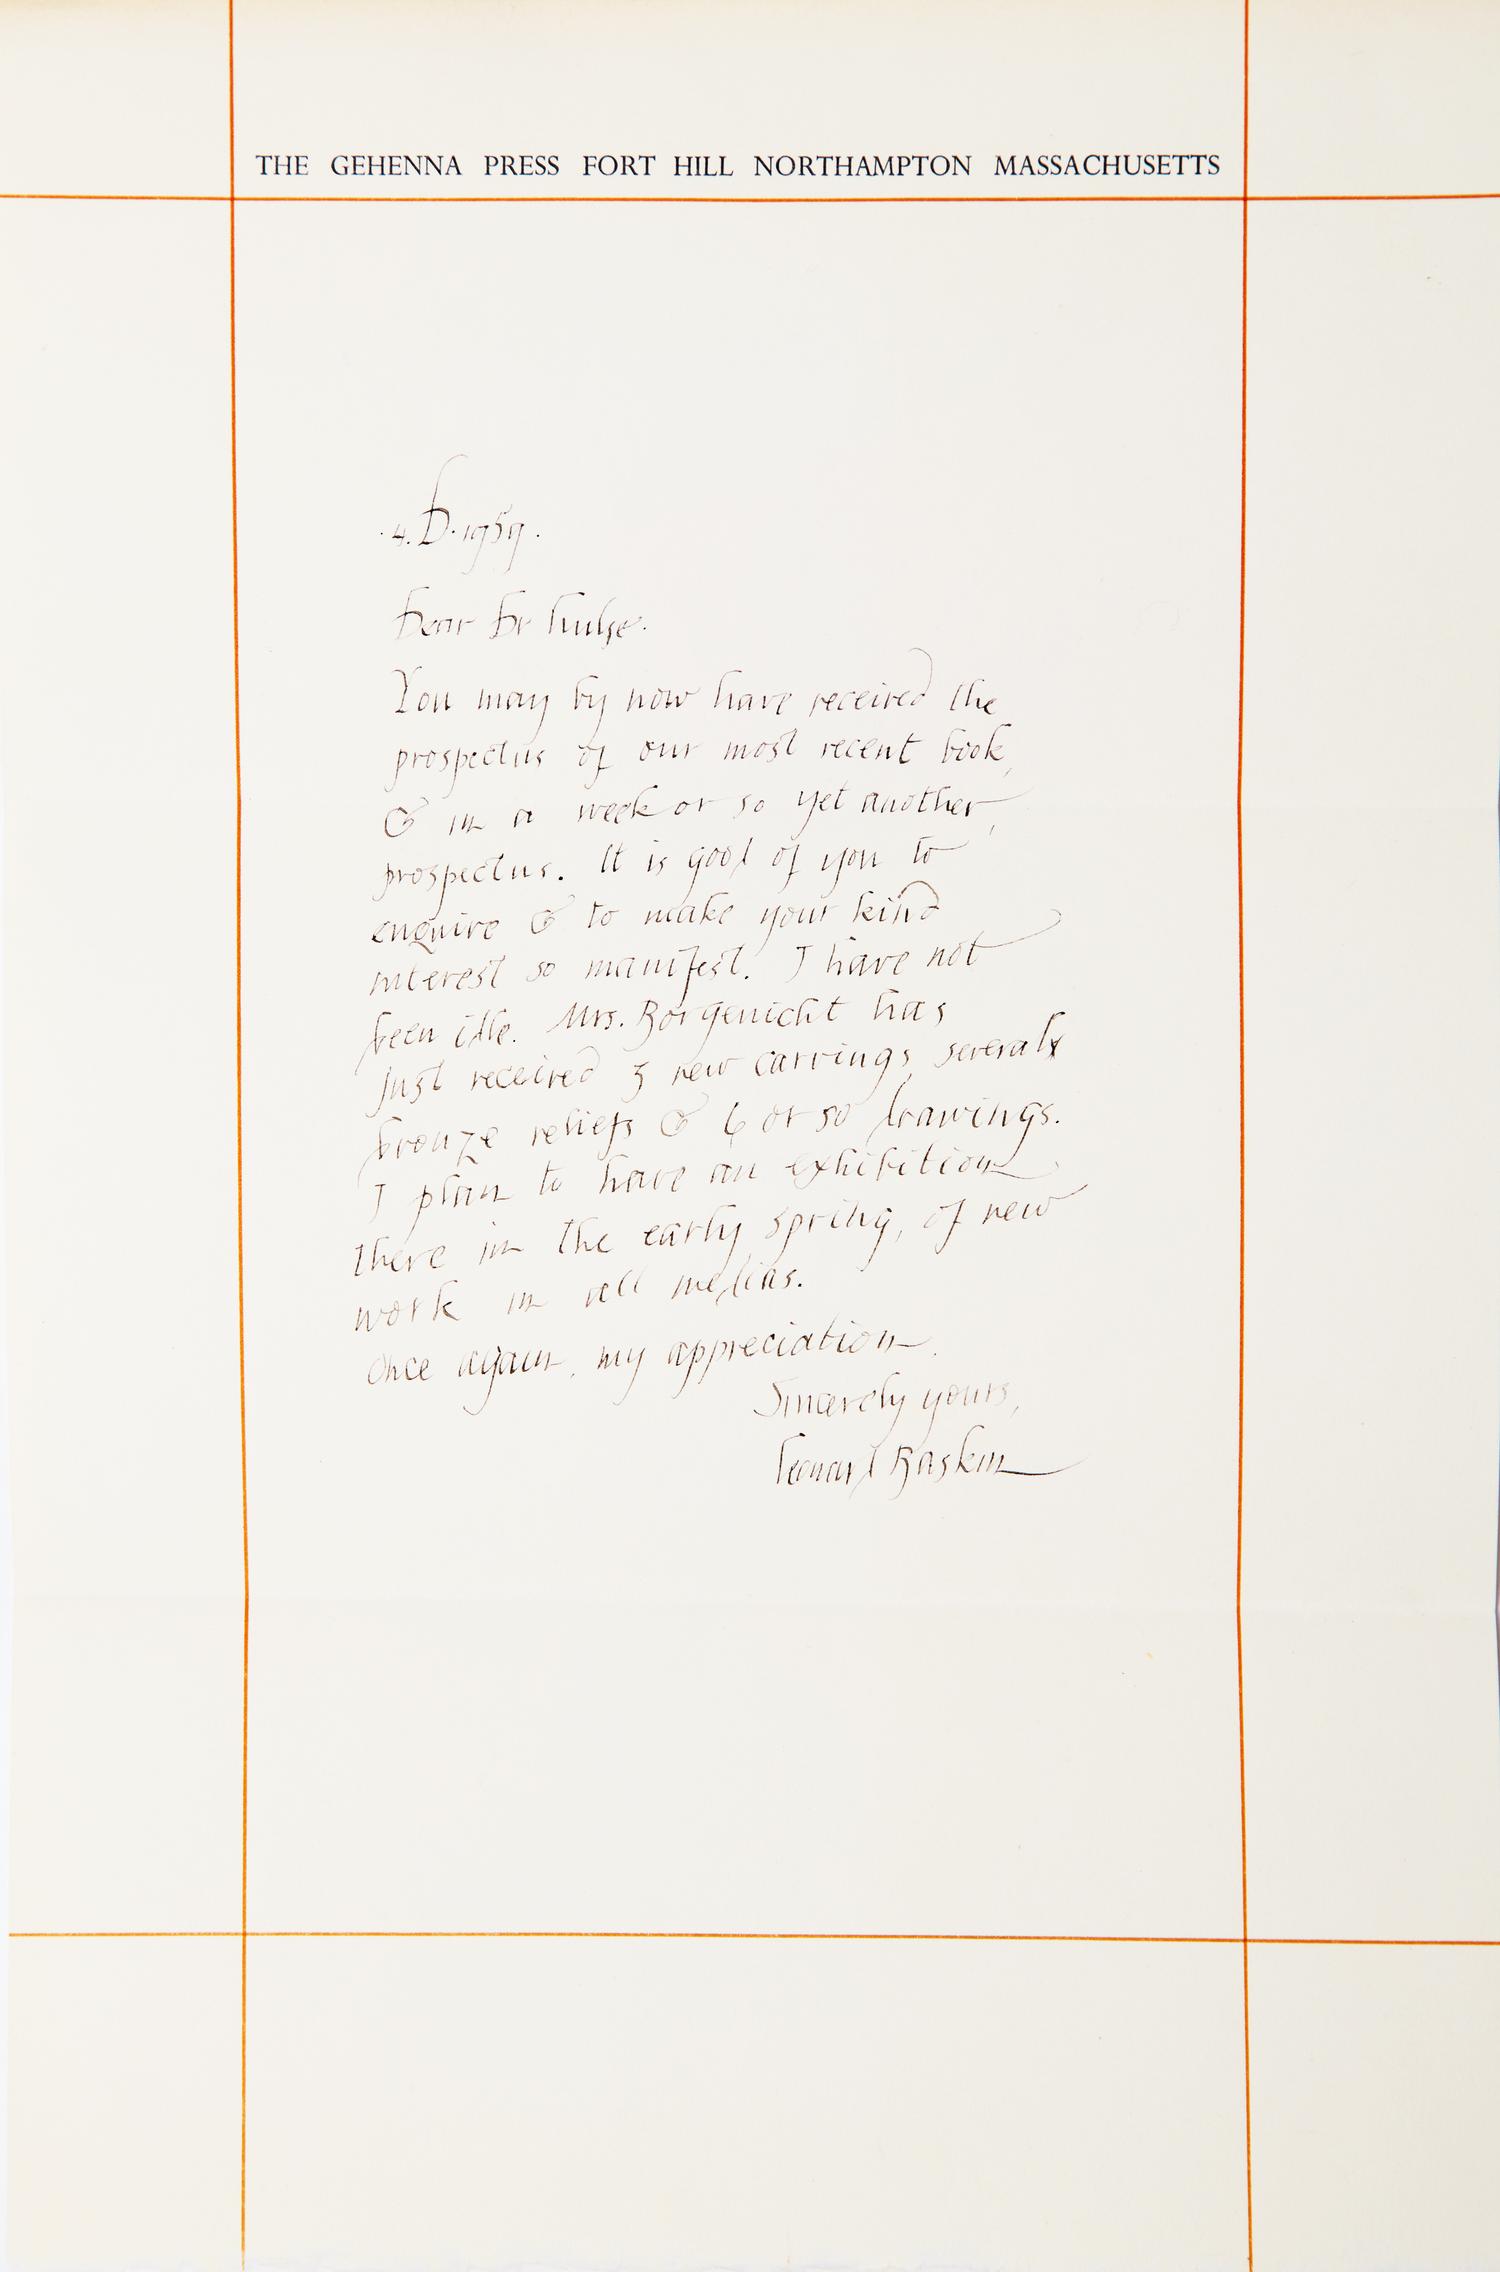 THE GEHENNA PRESS FORT HILL NORTHAMPTON MASSACHUSETTS
. 4. D. 1959.
Dear Dr Hulse.
You may by now have received the
prospectus of our most recent book,
& in a week or so yet another,
prospectus. It is good of you to
enquire & to make your kind
interest so manifest. I have not
been idle. Mrs. Borgenicht has
just received 3 new carvings, several
bronze reliefs & 6 or so drawings.
I plan to have an exhibition
there in the early spring, of new
work in all medias.
Once again, my appreciation.
Sincerely yours,
Leonard Baskin